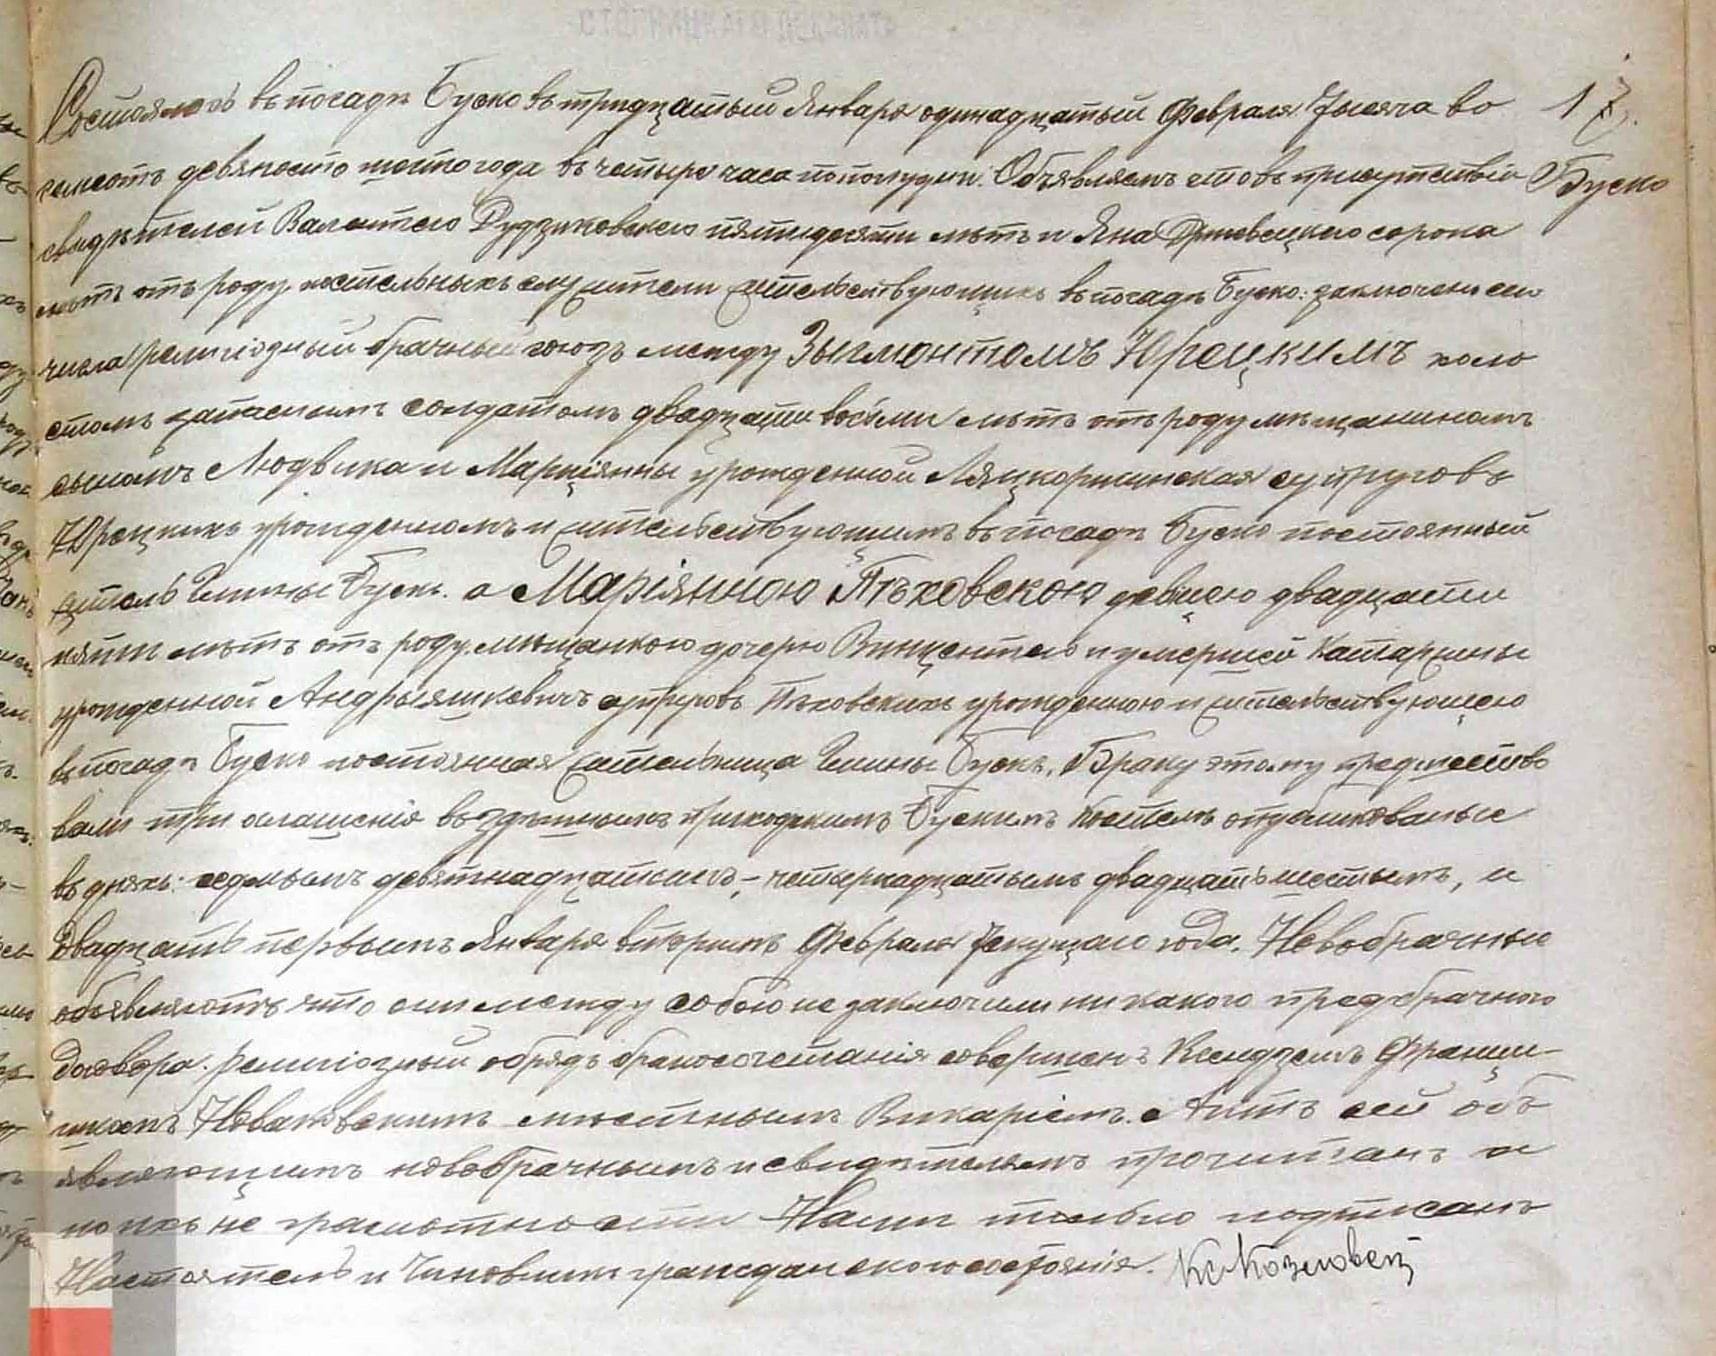 Состоялось въ посадѣ Буско въ тридцатый Января одинадцатый Февраля тысяча во
17.
семсотъ девяносто шестого года въ четыре часа пополудни. Объявляемъ что въ присутствіи
Буско
свидѣтелей Валентего Дудзиковскего пятидесяти лѣтъ и Яна сорока
лѣтъ отъ роду костельныхъ служители жительствующихъ въ посадѣ Буско: заключенъ сего
числа религіозный брачный союзъ между Зыгмонтомъ Юрецкимъ холо
стомъ запаснымъ солдатомъ двадцати восьми лѣтъ отъ роду мѣщаниномъ
сыномъ Людвика и Марціянны урожденной супруговъ
Юрецкихъ урожденномъ и жительствующимъ въ посадѣ Буско постоянный
житель Гмины Бускъ. а Маріянною Пѣховскою девицею двадцати
пяти лѣтъ отъ роду мѣщанкою дочерю Винцентего и умершей Катаржины
урожденной Андрыяшкевичъ супруговъ Пѣховскихъ урожденною и жительствующею
въ посадѣ Буско постоянная жительница Гмины Бускъ. Браку этому предшество
вали три оглашенія въ здѣшнемъ приходскимъ Бускимъ Костелѣ опубликованые
въ дняхъ: седмымъ девятнадцатымъ, – четырнадцатымъ двадцать шестымъ, и
двадцать первымъ Января вторымъ Февраля текущаго года. Новобрачные
объявляютъ что они между собою не заключили никакого предбрачного
договора. Религіозный обрядъ бракосочетанія совершенъ Ксендземъ Францы-
шкемъ Новаковскимъ мѣстнымъ Викаріемъ. Актъ сей объ
являющимъ новобрачнымъ и свидѣтелямъ прочитанъ и
по ихъ не грамотности Нами только подписанъ
Настоятель и Чиновникъ гражданского состоянія.